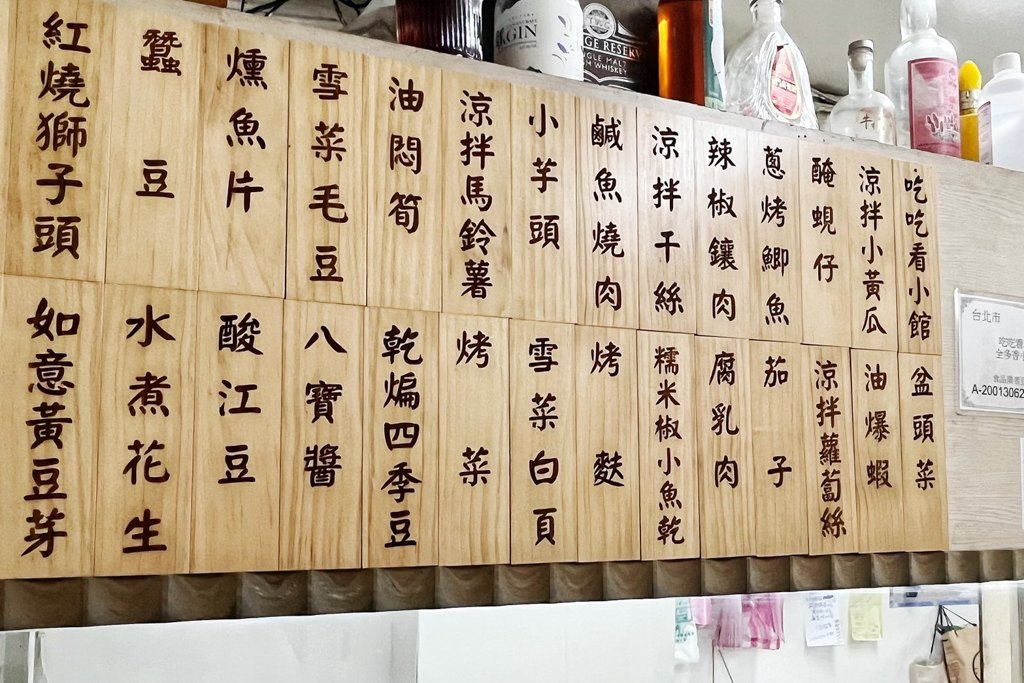 吃吃看小館
涼拌小黃瓜
醃蜆仔
蔥烤鯽魚
辣椒鑲肉
涼拌干絲
鹹魚燒肉
小芋頭
涼拌馬鈴薯
油悶筍
雪菜毛豆
燻魚片
蠶豆
紅燒獅子頭
盆頭菜
油爆蝦
涼拌蘿蔔絲
茄子
腐乳肉
糯米椒小魚乾
烤麩
雪菜白頁
烤菜
乾煸四季豆
八寶醬
酸江豆
水煮花生
如意黃豆芽
GIN
GE RESERVE
SINGLE MALT
WHISKEY
台北市
A-20013062